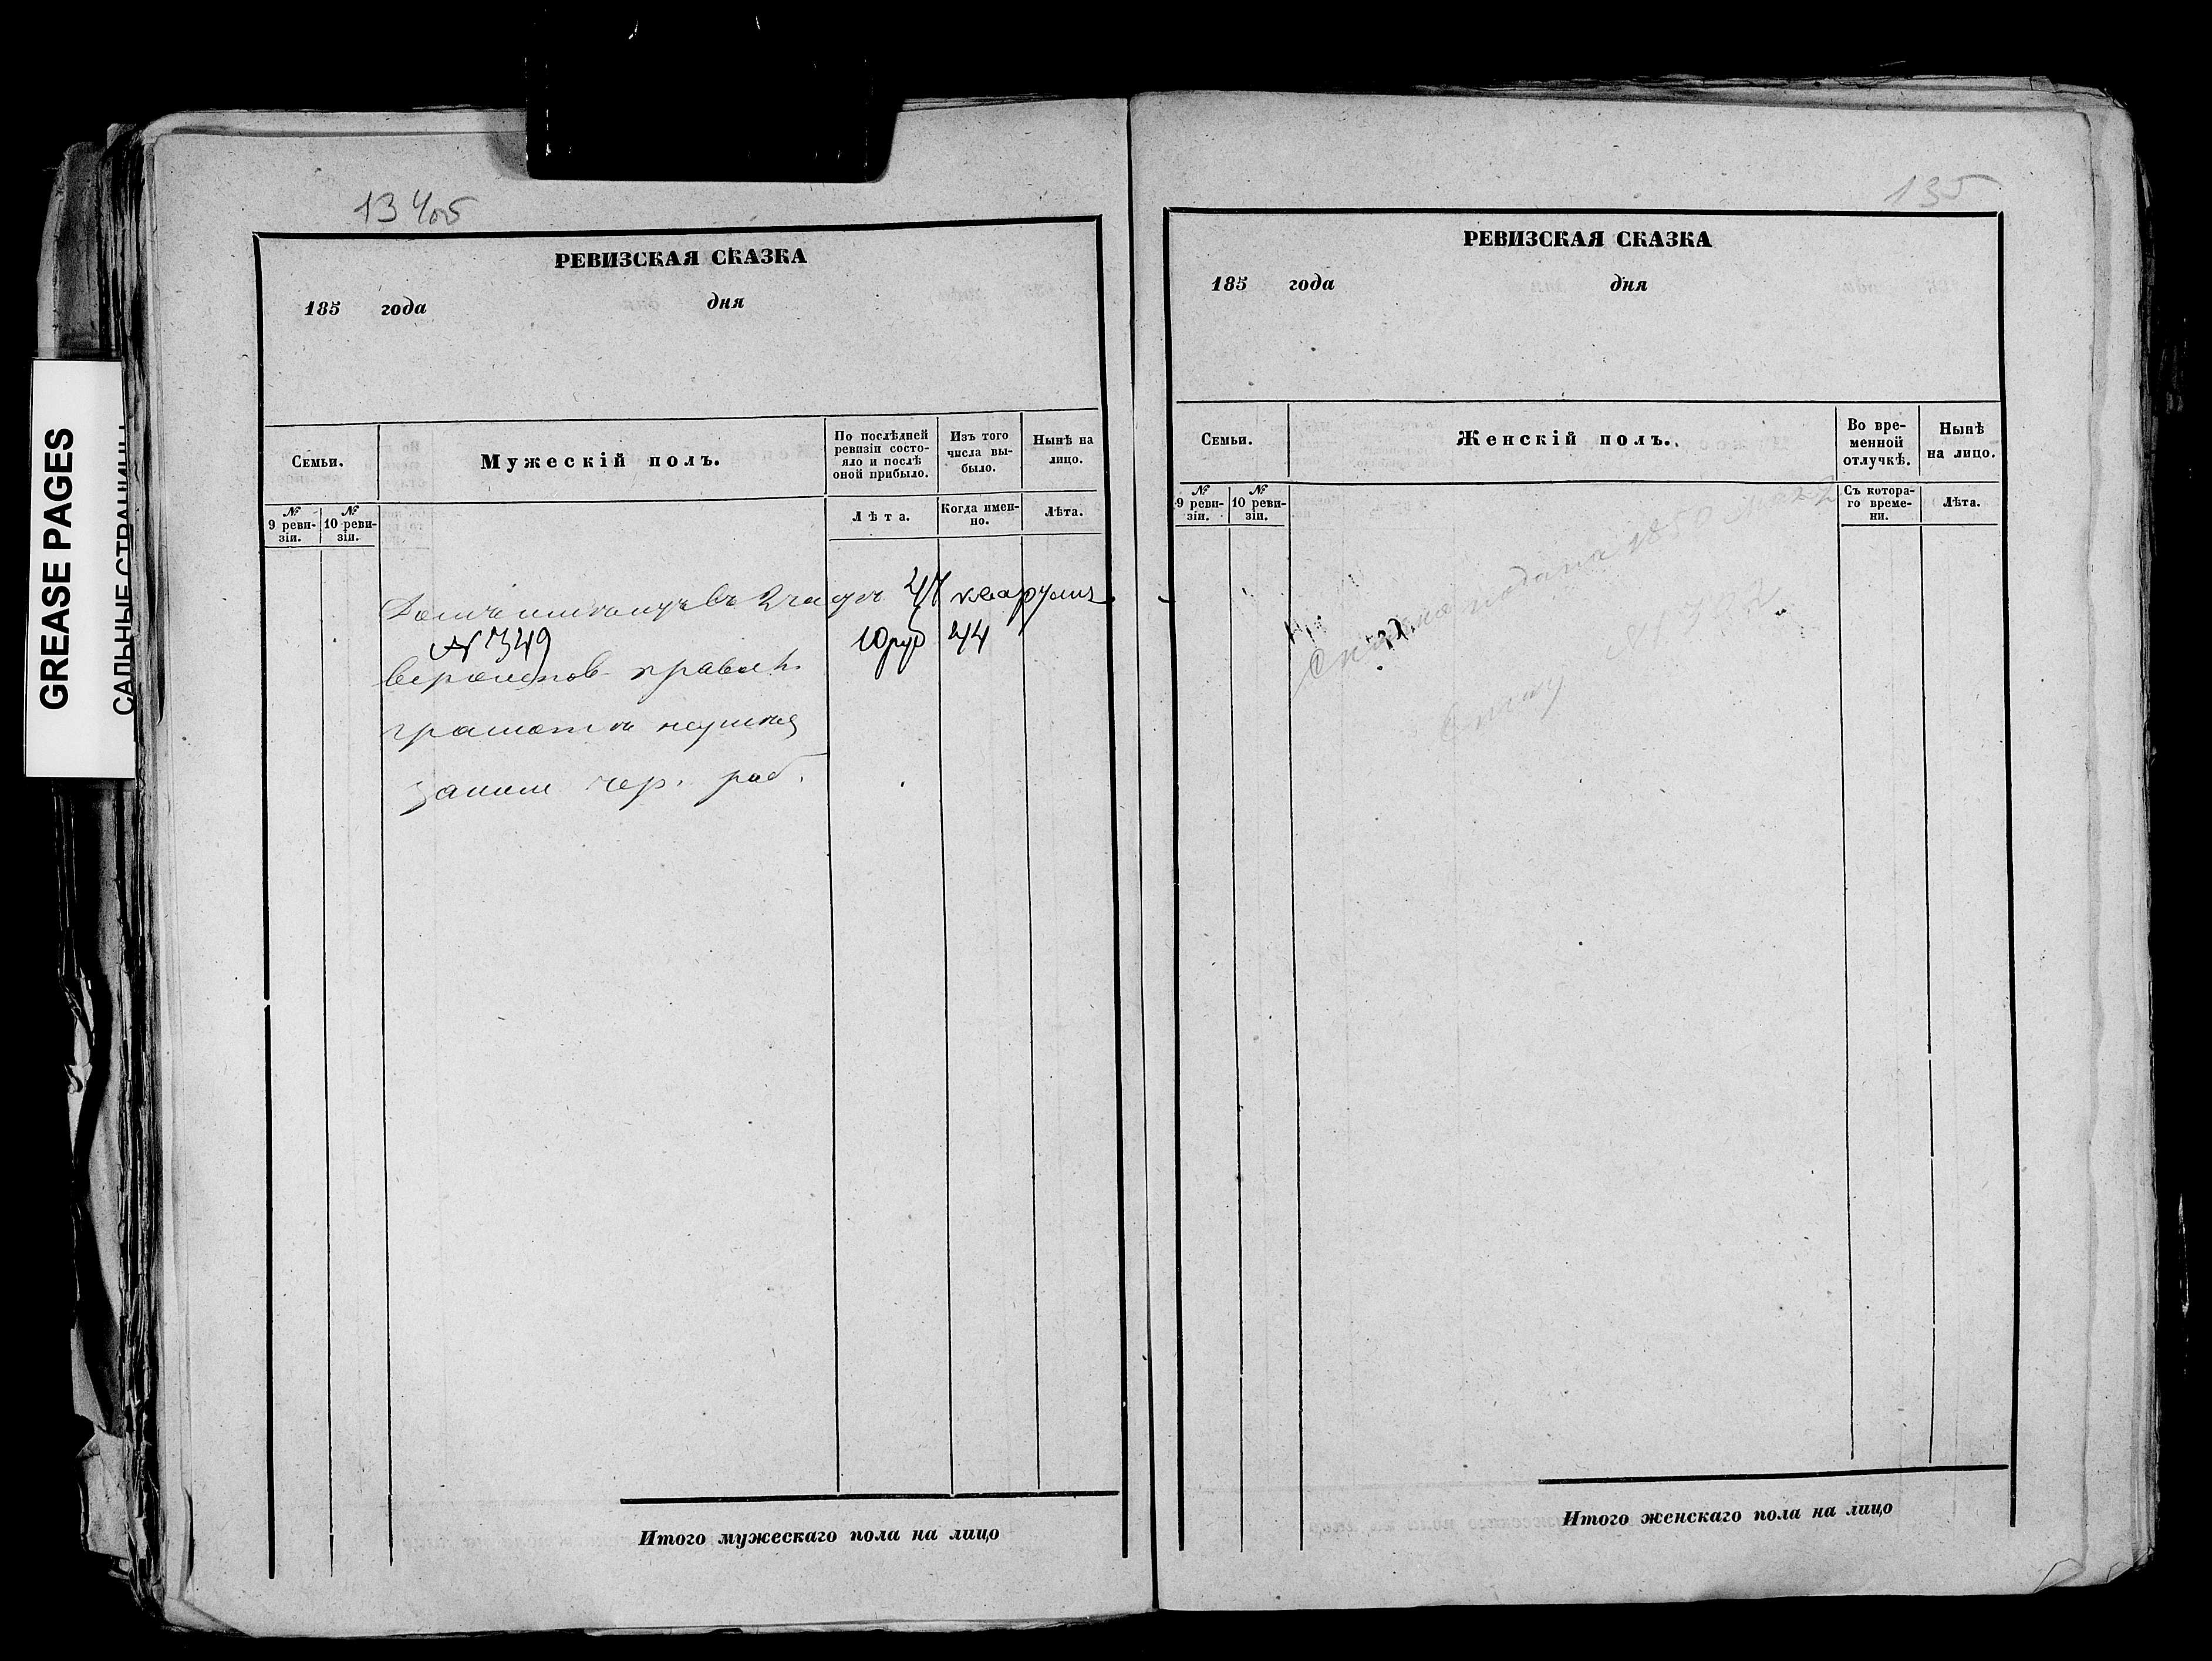 GREASE PAGES
САЛЬНЫЕ СТРАНИЦЫ
134об
РЕВИЗСКАЯ СКАЗКА
185 года дня
Семьи.
Мужескій полъ.
По послѣдней ревизіи состояло и послѣ оной прибыло.
Изъ того числа выбыло.
Нынѣ на лицо.
№ 9 ревизіи.
№ 10 ревизіи.
Лѣта.
Когда именно.
Лѣта.
въ 2 47
№ 349 10 руб 44
грамотѣ
заним чер. раб.
Итого мужескаго пола на лицо
135
РЕВИЗСКАЯ СКАЗКА
185 года дня
Семьи.
Женскій полъ.
Во временной отлучкѣ.
Нынѣ на лицо.
№ 9 ревизіи.
№ 10 ревизіи.
Съ котораго времени.
Лѣта.
подана 1850
Итого женскаго пола на лицо